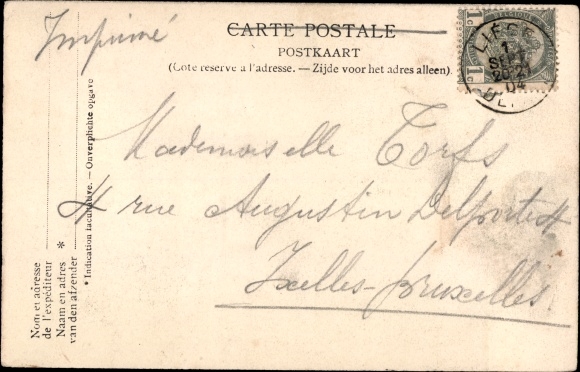 Imprimé
CARTE POSTALE
POSTKAART
(Côté réservé à l'adresse. — Zijde voor het adres alleen).
1c BELGIQUE 1c
LIÉGE
1
SEPT
20-21
04
Mademoiselle Torfs
4 rue Augustin Delporte 4
Ixelles-bruxelles
Nom et adresse
de l'expéditeur
Naam en adres *
van den afzender
* Indication facultative. — Onverplichte opgave